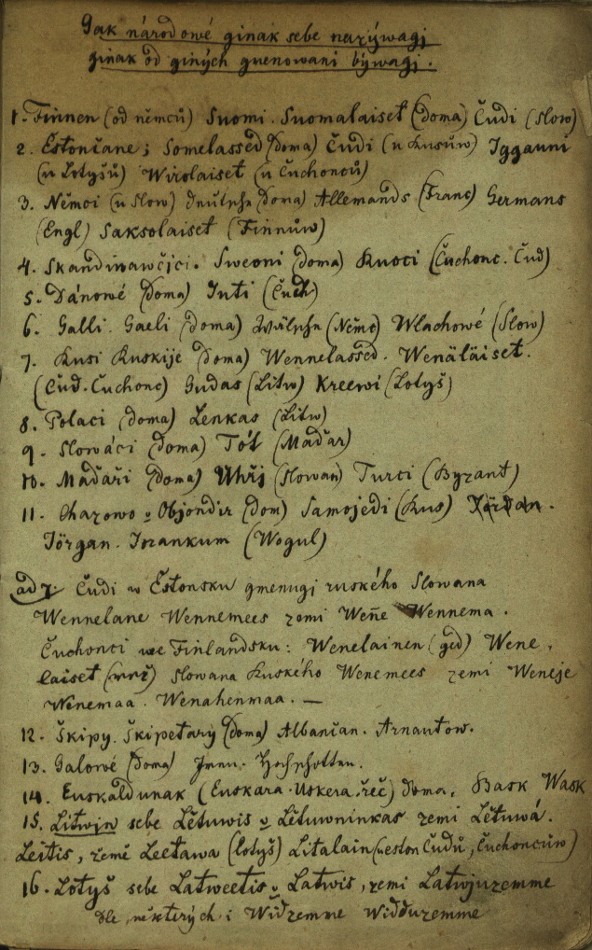 Gak národowé ginak sebe nazýwagj
ginak od giných gmenowani býwagj.
1. Finnen (od němců) Suomi. Suomalaiset (doma) Čudi (Slow)
2. Estončane; Somelassed (doma) Čudi (u Rusůw) Iggauni
(u Lotyšů) Wirolaiset (u Čuchonců)
3. Němci (u Slow) Deutsche (doma) Allemands (Franc) Germans
(Engl) Saksolaiset (Finnůw)
4. Skandinawčjci. Sweoni (doma) Ruoci (Čuchonc. Čud)
5. Dánowé (doma) Juti (Čuch)
6. Galli. Gaeli (doma) Wälsche (Němc) Wlachowé (Slow)
7. Rusi Ruskije (doma) Wennelassed. Wenäläiset.
(Čud. Čuchonc) Gudas (Litw) Kreewi (Lotyš)
8. Polaci (doma) Lenkas (Litw)
9. Slowáci (doma) Tót (Maďar)
10. Maďaři (doma) Uhřj (Slowan) Turci (Byzant)
11. Chazowo v Objondir (dom) Samojedi (Rus)
Jörgan. Jorankum (Wogul)
ad 7. Čudi w Estonsku gmenugj ruského Slowana
Wennelane Wennemees zemi Weňe Wennema.
Čuchonci we Finlandsku: Wenelainen (ged) Wene,
laiset (mrž) Slowana Ruského Wenemees zemi Weneje
Wenemaa. Wenahenmaa. —
12. Škipy. Škipetary (doma) Albančan. Arnautow.
13. Galowé (doma) Hochschotten.
14. Euskaldunak (Euskara. Uskera. řeč) doma. Bask Wask
15. Litwjn sebe Lětuwis v Lětuwninkas zemi Lětuwá.
Leitis, země Leetawa (lotyš) Litalain (u eston Čudů, Čuchoncůw)
16. Lotyš sebe Latweetis v Latwis, zemi Latwjuzemme
dle některých i Widzemme Widduzemme